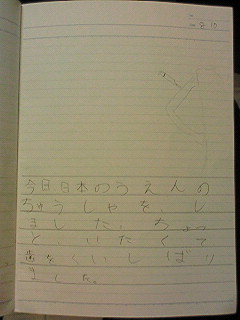 今日日本のうえんの
ちゅうしゃを、し
ました。ちょっ
と、いたくて
歯をくいしばり
ました。